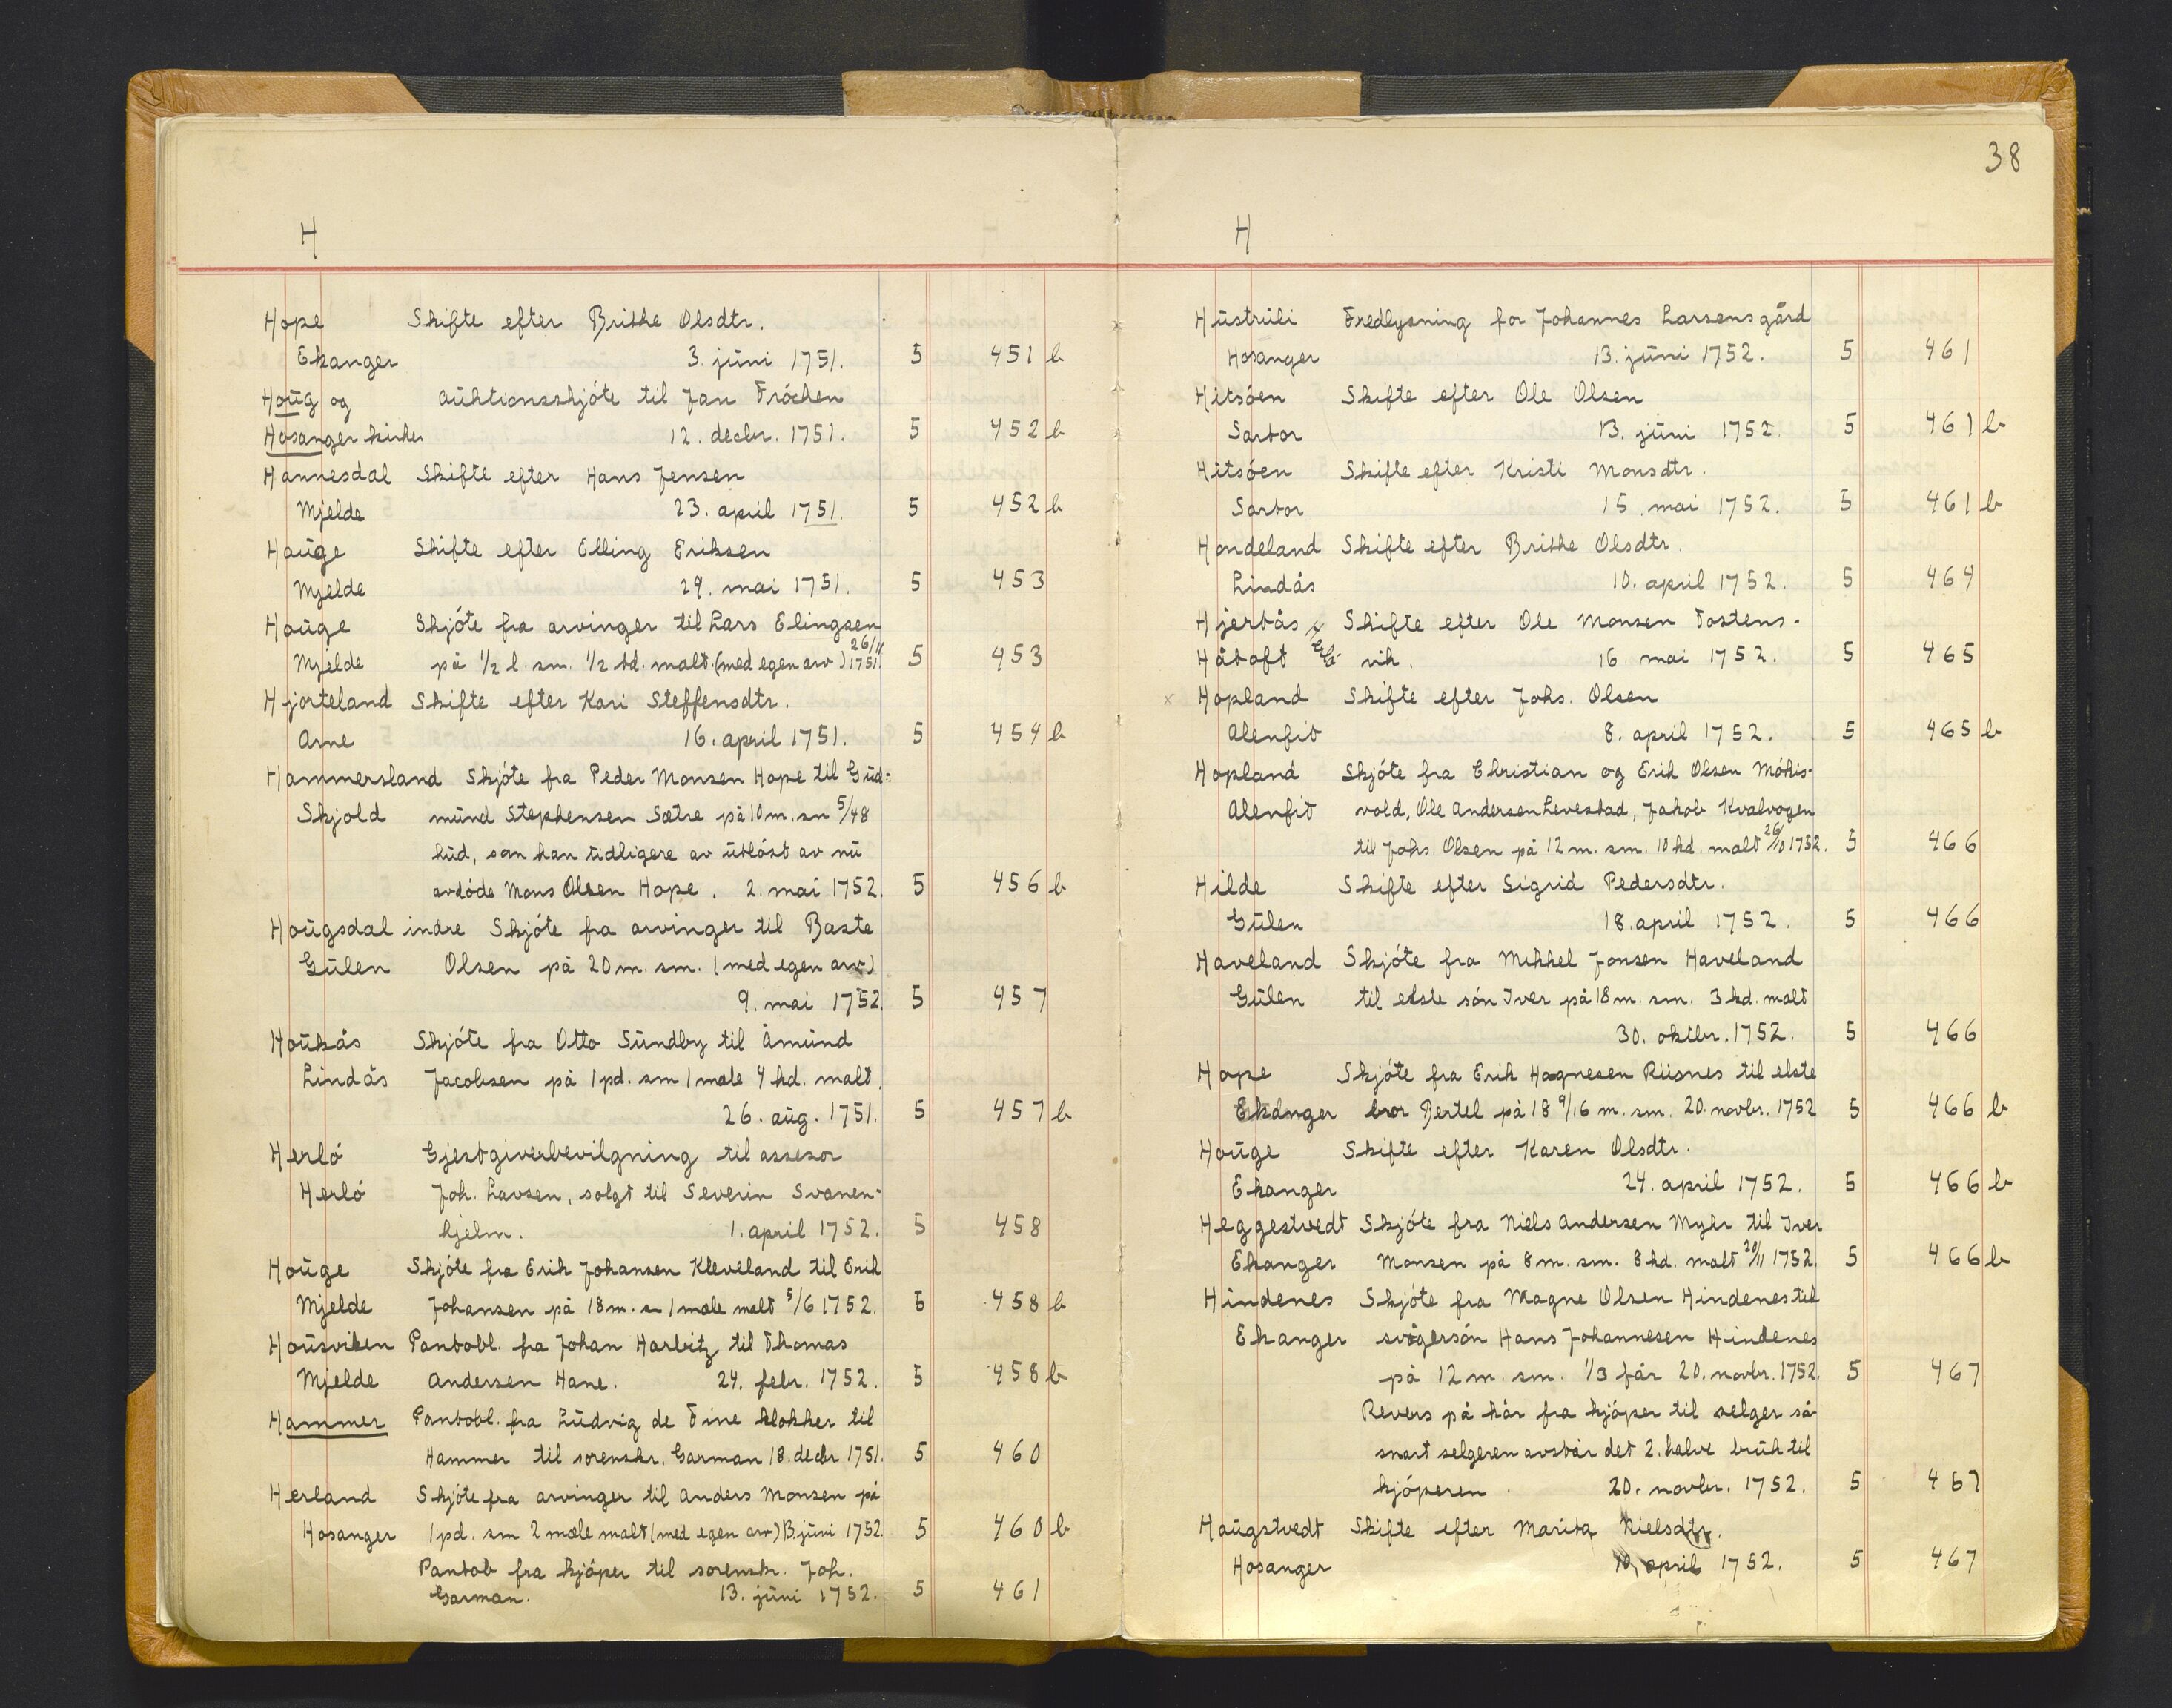 H
Hope Skifte efter Brithe Olsdtr.
Ekanger 3. juni 1751. 5 451 b
Houg og Auktionsskjöte til Jan Fröchen
Hosanger kirke 12. decbr. 1751. 5 452 b
Hannesdal Skifte efter Hans Jensen
Mjelde 23. april 1751. 5 452 b
Hauge Skifte efter Elling Eriksen
Mjelde 29. mai 1751. 5 453
Houge Skjöte fra arvinger til Lars Elingsen
Mjelde på 1/2 l. sm. 1/2 td. malt. (med egen arv) 26/11 1751. 5 453
Hjorteland Skifte efter Kari Steffensdtr.
Arne 16. april 1751. 5 454 b
Hammersland Skjöte fra Peder Monsen Hope til Gud=
Skjold mund Stephensen Sætre på 10 m. sm 5/48
hud, som han tidligere av utlöst av nu
avdöde Mons Olsen Hope. 2. mai 1752. 5 456 b
Hougsdal indre Skjöte fra arvinger til Baste
Gulen Olsen på 20 m. sm. (med egen arv)
9. mai 1752. 5 457
Houkås Skjöte fra Otto Sundby til Åmund
Lindås Jacobsen på 1 pd. sm 1 mæle 4 kd. malt.
26. aug. 1751. 5 457 b
Herlö Gjestgiverbevilgning til assesor
Herlö Joh. Lavsen, solgt til Severin Svanen-
hjelm. 1. april 1752. 5 458
Houge Skjöte fra Erik Johansen Kleveland til Erik
Mjelde Johansen på 18 m. sm 1 mæle malt 5/6 1752. 5 458 b
Housviken Pantobl. fra Johan Harbitz til Thomas
Mjelde Andersen Hane. 24. febr. 1752. 5 458 b
Hammer Pantobl. fra Ludvig de Fine klokker til
Hammer til sorenskr. Garman 18. decbr 1751. 5 460
Herland Skjöte fra arvinger til Anders Monsen på
Hosanger 1 pd. sm 2 mæle malt (med egen arv) 13. juni 1752. 5 460 b
Pantob fra kjöper til sorenskr. Joh.
Garman. 13. juni 1752. 5 461
38
H
Hustruli Fredlysning for Johannes Larsens gård
Hosanger 13. juni 1752. 5 461
Hitsöen Skifte efter Ole Olsen
Sartor 13. juni 1752. 5 461 b
Hitsöen Skifte efter Kristi Monsdtr.
Sartor 15. mai 1752. 5 461 b
Hondeland Skifte efter Brithe Olsdtr.
Lindås 10. april 1752. 5 464
Hjertås Skifte efter Ole Monsen Tostens-
Håtoft vik. 16. mai 1752. 5 465
x Hopland Skifte efter Johs. Olsen
Alenfit 8. april 1752. 5 465 b
Hopland Skjöte fra Christian og Erik Olsen Mökis-
Alenfit vold, Ole Andersen Levestad, Jakob Kvalvogen
til Johs. Olsen på 12 m. sm. 10 kd. malt 26/10 1752. 5 466
Hilde Skifte efter Sigrid Pedersdtr.
Gulen 18. april 1752. 5 466
Haveland Skjöte fra Mikkel Jonsen Haveland
Gulen til elste sön Iver på 18 m. sm. 3 kd. malt
30. oktbr. 1752. 5 466
Hope Skjöte fra Erik Hagnesen Risnes til elste
Ekanger bror Bertel på 18 9/16 m. sm. 20. novbr. 1752 5 466 b
Houge Skifte efter Karen Olsdtr.
Ekanger 24. april 1752. 5 466 b
Heggestvedt Skjöte fra Niels Andersen Myhr til Iver
Ekanger Monsen på 8 m. sm. 8 kd. malt 20/11 1752. 5 466 b
Hindenes Skjöte fra Magne Olsen Hindenes til
Ekanger svögersön Hans Johannesen Hindenes
på 12 m. sm. 1/3 får 20. novbr. 1752. 5 467
Revers på kår fra kjöper til selger så
snart selgeren avstår det 2. halve bruk til
kjöperen. 20. novbr. 1752. 5 467
Haugstvedt Skifte efter Marita Nielsdtr.
Hosanger 10. april 1752. 5 467